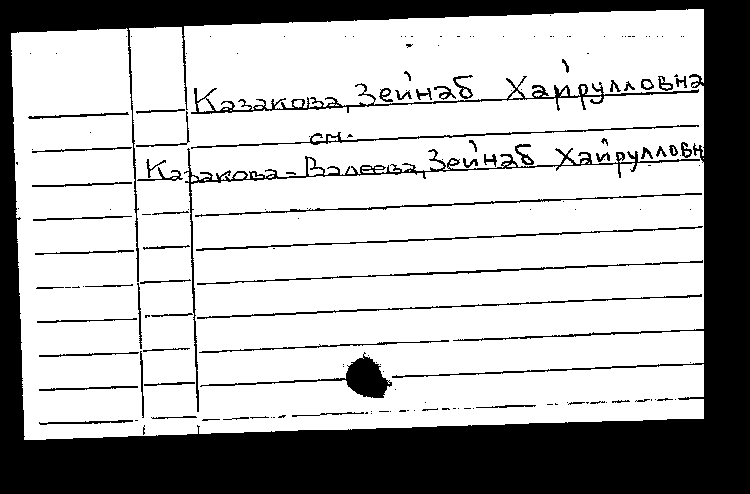 Казакова, Зейнаб Хайрулловна
см.
Казакова-Валеева, Зейнаб Хайрулловн